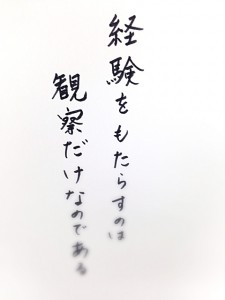 経験をもたらすのは
観察だけなのである